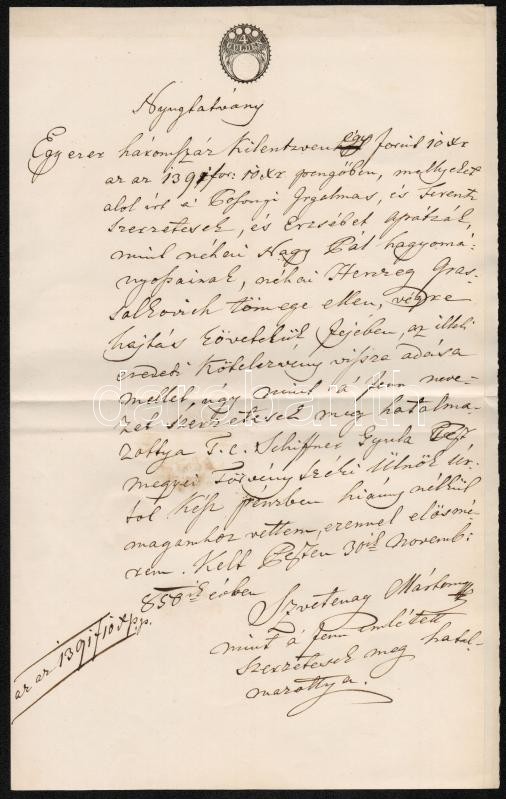 4
GULDEN
Nyugtatvány
Egy ezer három száz kilentzven egy forint 10 xr
az az 1391 for: 10 xr pengőben, mellyeket
alol irt a' Posonyi Irgalmas, és Ferentz
Szerzetesek, és Ersébet apátzák,
mint néhai Nagy Pál hagyomá-
nyossainak, néhai Herczeg Gras-
salkovich tömege ellen, végre
hajtás követelésük fejében, az illető
eredeti Kötelezvény vissza adása
mellet, úgy mint a' fenn neve-
zet szerzetesek meg hatalma-
zottya T. c. Schiffner Gyula Pest
megyei Törvény széki Ülnök úr-
tol kész pénzben hiány nélkül
magamhoz vettem, ezennel elösmé-
rem. Kelt Pesten 30ik Novemb:
850ik évben
Szvetenay Márton
mint a' fenn emlétett
Szerzetesek meg hatal-
mazottya.
az az 1391 f 10 x p.p.
darabanth